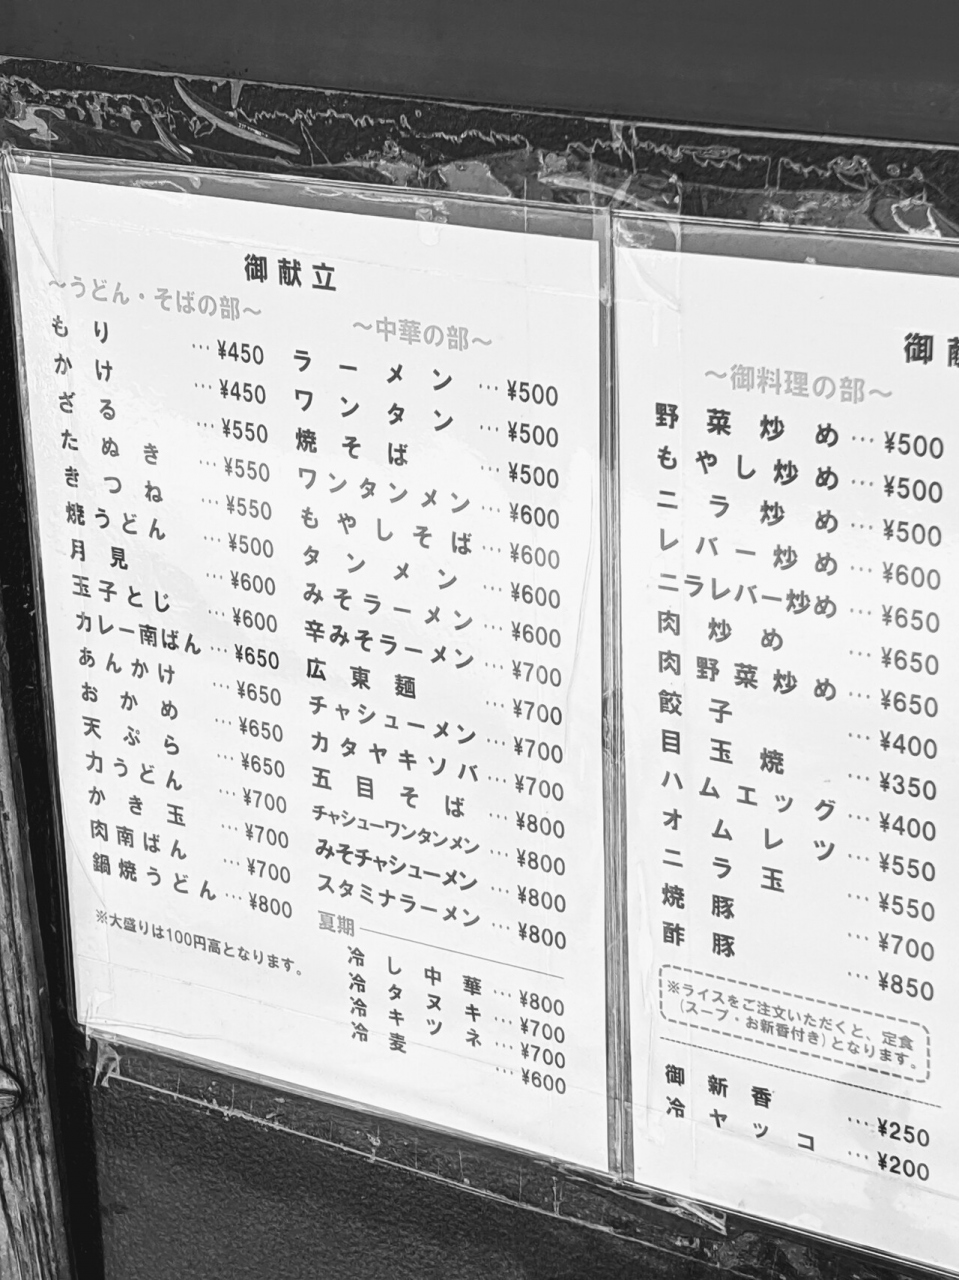 御献立
～うどん・そばの部～
もり … ¥450
かけ … ¥450
ざる … ¥550
たぬき … ¥550
きつね … ¥550
焼うどん … ¥500
月見 … ¥600
玉子とじ … ¥600
カレー南ばん … ¥650
あんかけ … ¥650
おかめ … ¥650
天ぷら … ¥650
力うどん … ¥700
かき玉 … ¥700
肉南ばん … ¥700
鍋焼うどん … ¥800
※大盛りは100円高となります。
～中華の部～
ラーメン … ¥500
ワンタン … ¥500
焼そば … ¥500
ワンタンメン … ¥600
もやしそば … ¥600
タンメン … ¥600
みそラーメン … ¥600
辛みそラーメン … ¥700
広東麺 … ¥700
チャシューメン … ¥700
カタヤキソバ … ¥700
五目そば … ¥800
チャシューワンタンメン … ¥800
みそチャシューメン … ¥800
スタミナラーメン … ¥800
夏期
冷し中華 … ¥800
冷タヌキ … ¥700
冷キツネ … ¥700
冷麦 … ¥600
御献
～御料理の部～
野菜炒め … ¥500
もやし炒め … ¥500
ニラ炒め … ¥500
レバー炒め … ¥600
ニラレバー炒め … ¥650
肉炒め … ¥650
肉野菜炒め … ¥650
餃子 … ¥400
目玉焼 … ¥350
ハムエッグ … ¥400
オムレツ … ¥550
ニラ玉 … ¥550
焼豚 … ¥700
酢豚 … ¥850
※ライスをご注文いただくと、定食
(スープ・お新香付き)となります。
御新香 … ¥250
冷ヤッコ … ¥200